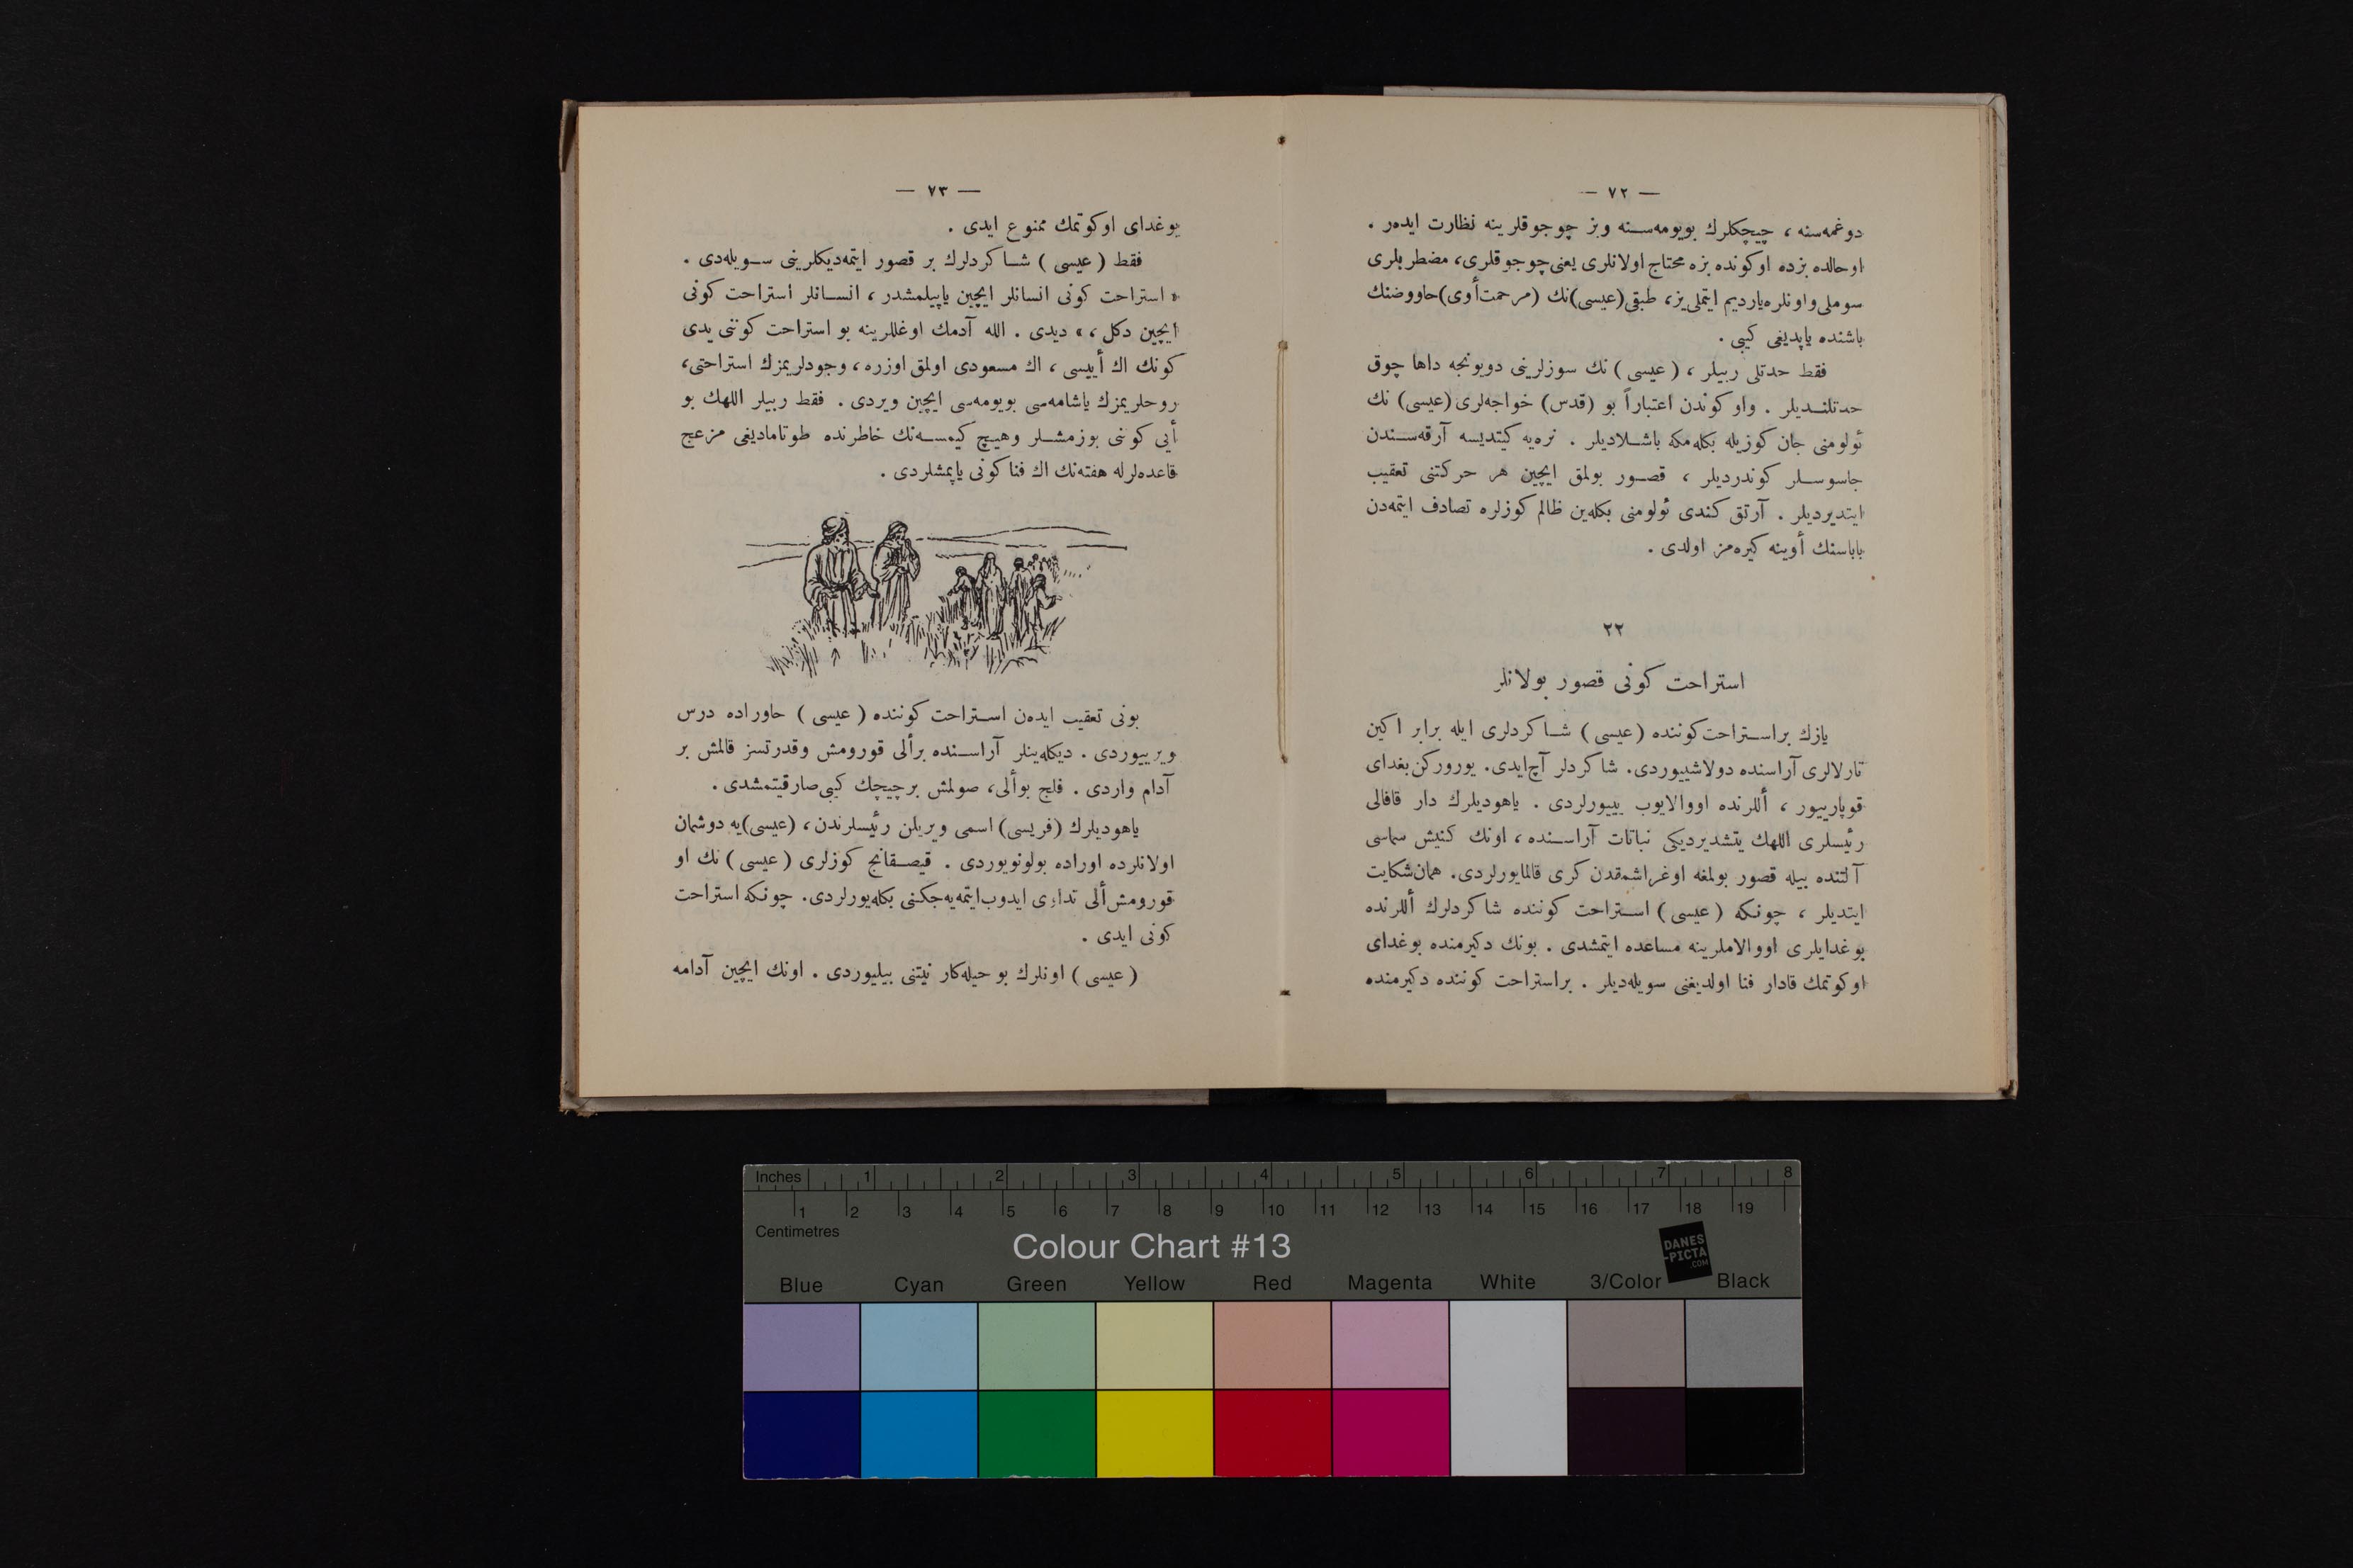 — ٧٢ —
دوغمه‌سنه ، چیچکلرك بویومه‌سنه وبز چوجوقلرینه نظارت ایدەر .
اوحالده بزده اوکونده بزه محتاج اولانلری یعنی چوجوقلری، مضطربلری
سوملی واونلره یاردیم ایتملی‌یز، طبقی (عیسی)نك (مرحمت أوی) حاووضنك
باشنده یاپدیغی کبی .
فقط حدتلی ربیلر ، (عیسی) نك سوزلرینی دویونجه داها چوق
حدتلندیلر . واو کوندن اعتباراً بو (قدس) خواجه‌لری (عیسی) نك
ئولومنی جان کوزیله بکله‌مکه باشلادیلر . نره‌یه کیتدیسه آرقه‌سندن
جاسوسلر کوندردیلر ، قصور بولمق ایچین هر حرکتنی تعقیب
ایتدیردیلر . آرتق کندی ئولومنی بکله‌ین ظالم کوزلره تصادف ایتمه‌دن
باباسنك أوینه کیره‌مز اولدی .
٢٢
استراحت کونی قصور بولانلر
یازك براستراحت کوننده (عیسی) شاکردلری ایله برابر اکین
تارلالری آراسنده دولاشییوردی. شاکردلر آچ ایدی. یورورکن بغدای
قوپارییور ، أللرنده اووالایوب ییییورلردی . یاهودیلرك دار قافالی
رئیسلری اللهك یتشدیردیکی نباتات آراسنده ، اونك کنیش سماسی
آلتنده بیله قصور بولمغه اوغراشمقدن کری قالمایورلردی. همان شکایت
ایتدیلر ، چونکه (عیسی) استراحت کوننده شاکردلرك أللرنده
بوغدایلری اووالاملرینه مساعده ایتمشدی . بونك دکیرمنده بوغدای
اوکوتمك قادار فنا اولدیغنی سویله‌دیلر . براستراحت کوننده دکیرمنده
— ٧٣ —
بوغدای اوکوتمك ممنوع ایدی .
فقط (عیسی) شاکردلرك بر قصور ایتمه‌دیکلرینی سویله‌دی .
« استراحت کونی انسانلر ایچین یاپیلمشدر ، انسانلر استراحت کونی
ایچین دکل ، » دیدی . الله آدمك اوغللرینه بو استراحت کوننی یدی
کونك اك أییسی ، اك مسعودی اولمق اوزره ، وجودلریمزك استراحتی،
روحلریمزك یاشامه‌سی بویومه‌سی ایچین ویردی . فقط ربیلر اللهك بو
أیی کوننی بوزمشلر وهیچ کیمسه‌نك خاطرنده طوتامادیغی مزعج
قاعده‌لرله هفته‌نك اك فنا کونی یاپمشلردی .
بونی تعقیب ایده‌ن استراحت کوننده (عیسی) حاوراده درس
ویرییوردی . دیکله‌ینلر آراسنده برألی قورومش وقدرتسز قالمش بر
آدام واردی . فلج بوألی، صولمش برچیچك کبی صارقیتمشدی .
یاهودیلرك (فریسی) اسمی ویریلن رئیسلرندن، (عیسی)یه دوشمان
اولانلرده اوراده بولونویوردی . قیصقانج کوزلری (عیسی) نك او
قورومش ألی تداوی ایدوب ایتمه‌یه‌جکنی بکله‌یورلردی. چونکه استراحت
کونی ایدی .
(عیسی) اونلرك بو حیله‌کار نیتنی بیلیوردی . اونك ایچین آدامه
Inches 1 2 3 4 5 6 7 8
1 2 3 4 5 6 7 8 9 10 11 12 13 14 15 16 17 18 19
Centimetres
Colour Chart #13
DANES
-PICTA
.COM
Blue Cyan Green Yellow Red Magenta White 3/Color Black